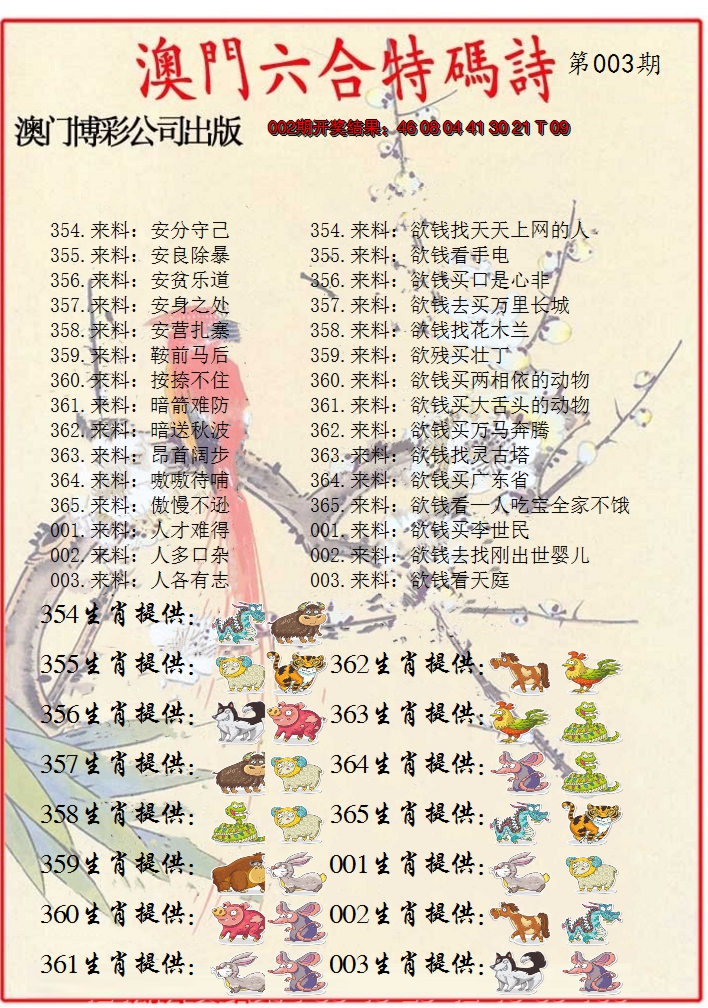 澳門六合特碼詩 第003期
澳门博彩公司出版 002期开奖结果：46 08 04 41 30 21 T 09
354.来料：安分守己 354.来料：欲钱找天天上网的人
355.来料：安良除暴 355.来料：欲钱看手电
356.来料：安贫乐道 356.来料：欲钱买口是心非
357.来料：安身之处 357.来料：欲钱去买万里长城
358.来料：安营扎寨 358.来料：欲钱找花木兰
359.来料：鞍前马后 359.来料：欲残买壮丁
360.来料：按捺不住 360.来料：欲钱买两相依的动物
361.来料：暗箭难防 361.来料：欲钱买大舌头的动物
362.来料：暗送秋波 362.来料：欲钱买万马奔腾
363.来料：昂首阔步 363.来料：欲钱找灵古塔
364.来料：嗷嗷待哺 364.来料：欲钱买广东省
365.来料：傲慢不逊 365.来料：欲钱看一人吃宝全家不饿
001.来料：人才难得 001.来料：欲钱买李世民
002.来料：人多口杂 002.来料：欲钱去找刚出世婴儿
003.来料：人各有志 003.来料：欲钱看天庭
354生肖提供：
355生肖提供： 362生肖提供：
356生肖提供： 363生肖提供：
357生肖提供： 364生肖提供：
358生肖提供： 365生肖提供：
359生肖提供： 001生肖提供：
360生肖提供： 002生肖提供：
361生肖提供： 003生肖提供：